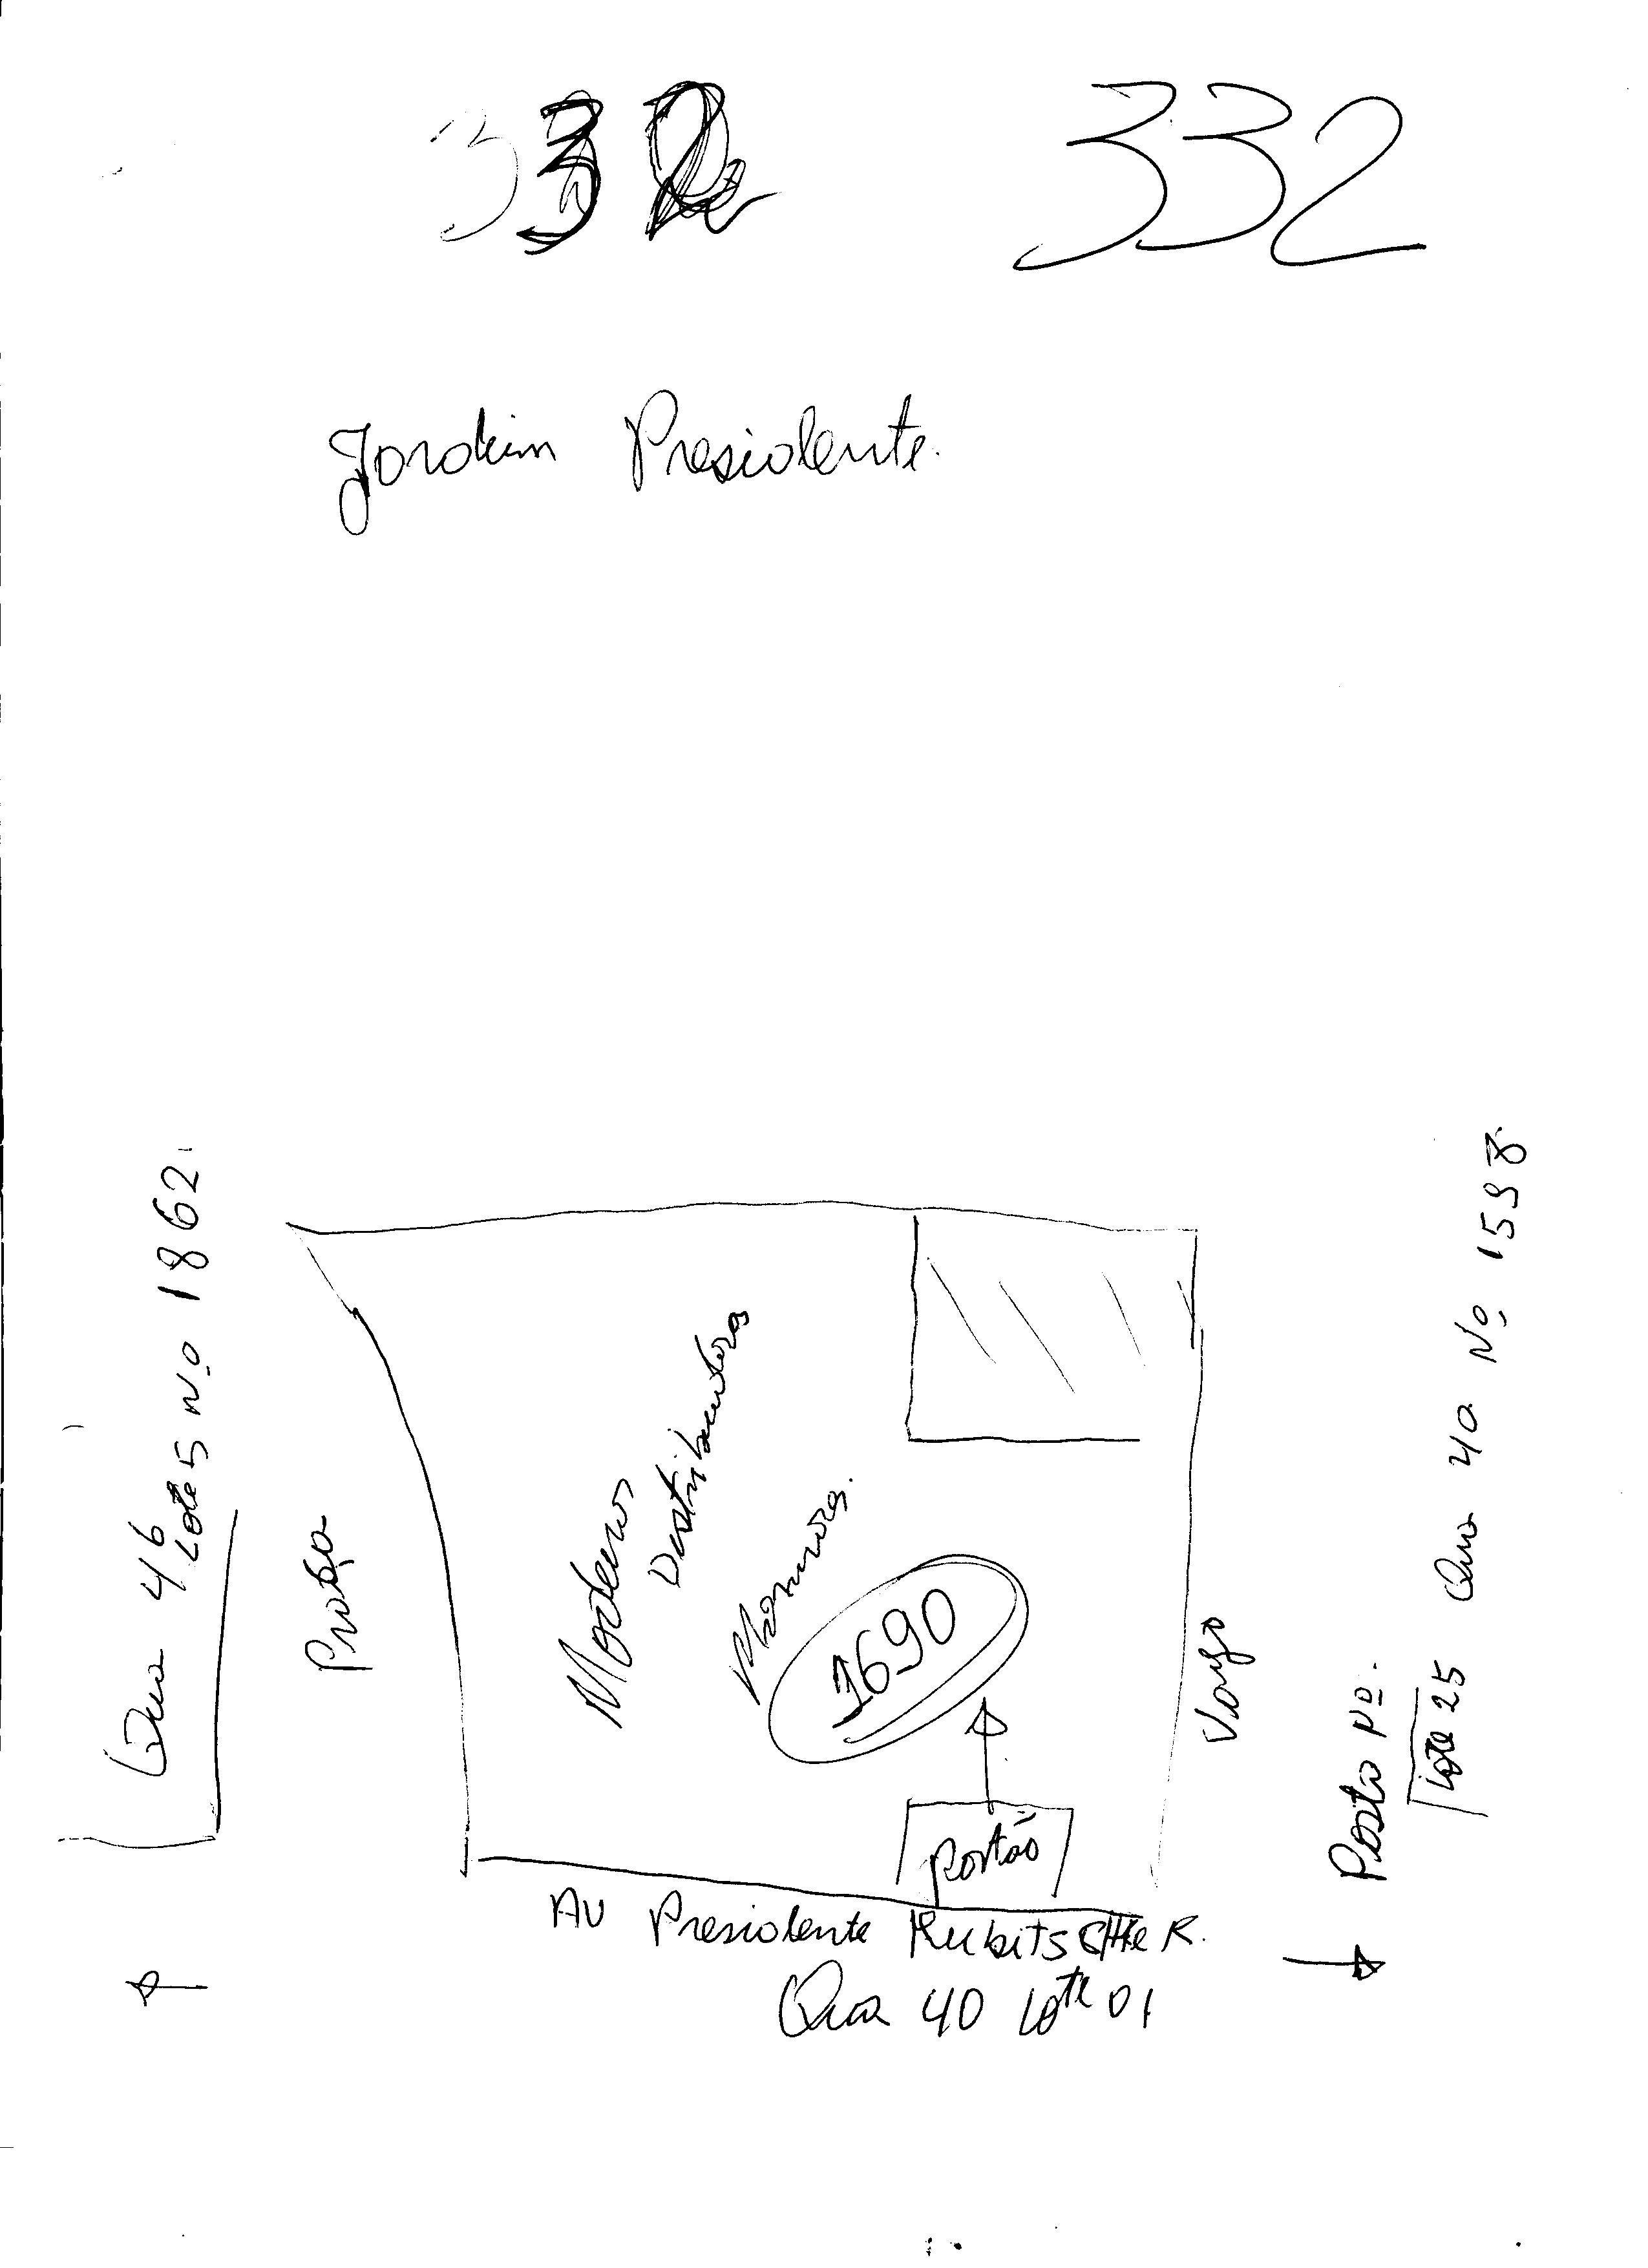 332 332
Jardim Presidente.
Qua 46
Lote 5 nº 1862.
Praça
Madeiras
Distribuidora
1690
Vargo
Posto Nº.
Lote 25
Qua 40 Nº 1598.
Portão
AV Presidente Kubitschek.
Qua 40 Lote 01